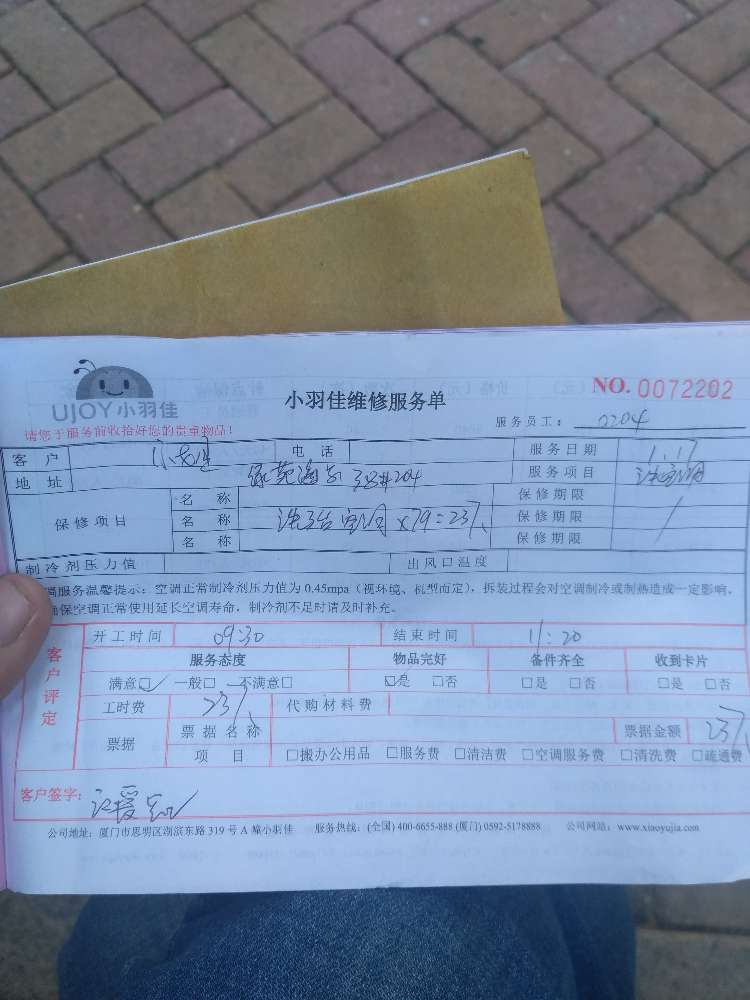 UJOY小羽佳
小羽佳维修服务单
NO. 0072202
请您于服务前收拾好您的贵重物品!
服务员工: 0204
客户 电话 服务日期 1.17
地址 38#204 服务项目 洗空调
保修项目
名称 保修期限
名称 洗3台空调 x79=237 保修期限
名称 保修期限
制冷剂压力值 出风口温度
调服务温馨提示:空调正常制冷剂压力值为 0.45mpa(视环境、机型而定),拆装过程会对空调制冷或制热造成一定影响,
确保空调正常使用延长空调寿命,制冷剂不足时请及时补充。
客户评定
开工时间 09:30 结束时间 11:20
服务态度 物品完好 备件齐全 收到卡片
满意☑ 一般□ 不满意□ □是 □否 □是 □否 □是 □否
工时费 237 代购材料费
票据 票据名称 票据金额 237
项目 □搬办公用品 □服务费 □清洁费 □空调服务费 □清洗费 □疏通费
客户签字:
公司地址:厦门市思明区湖滨东路 319 号 A 幢小羽佳 服务热线:(全国) 400-6655-888 (厦门) 0592-5178888 公司网站:www.xiaoyujia.com